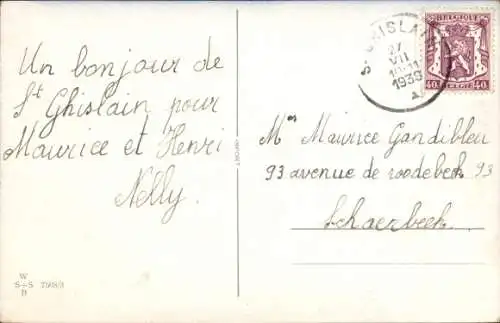 Un bonjour de
St Ghislain pour
Maurice et Henri
Nelly.
W
S+S
B
ST GHISLAIN
27
VII
1939
BELGIQUE
40 40
BELGIË
Mr Maurice Gandibleu
93 avenue de roodebeek 93
Schaerbeek.